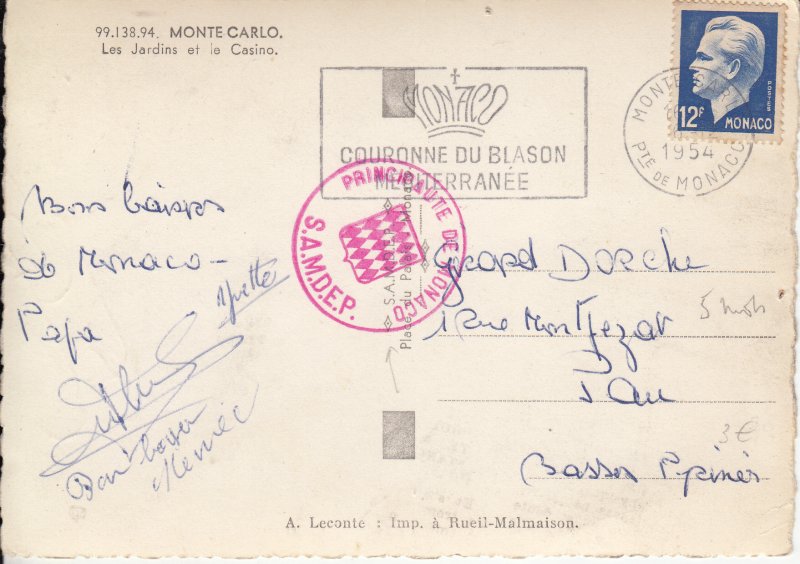 99.138.94. MONTE-CARLO.
Les Jardins et le Casino.
MONACO
COURONNE DU BLASON
MÉDITERRANÉE
POSTES
12F MONACO
MONTE-CARLO
1954
PTÉ DE MONACO
PRINCIPAUTÉ DE MONACO
S.A.M.D.E.P.
S.A.M.D.E.P.
Place du Palais Monaco
Bons baisers
de Monaco-
Papa
Yvette
Bons baisers
Gérard
1 Rue Montfezat
Pau
Basses
5 mots
3€
A. Leconte : Imp. à Rueil-Malmaison.